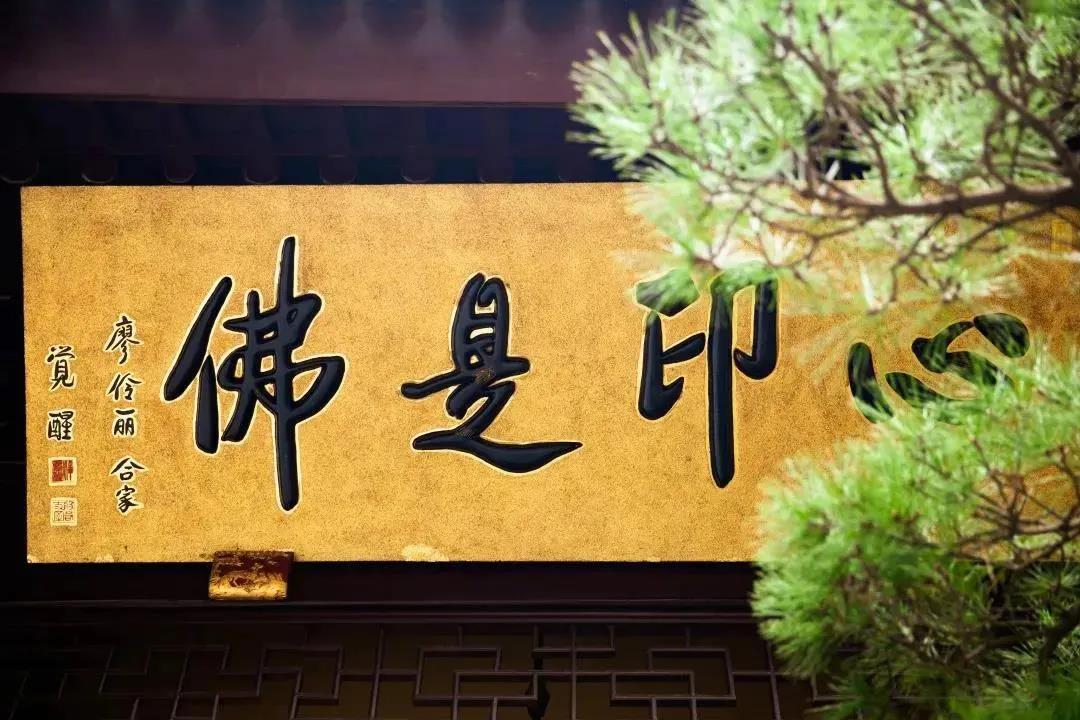 心印是佛
廖伶丽 合家
觉醒